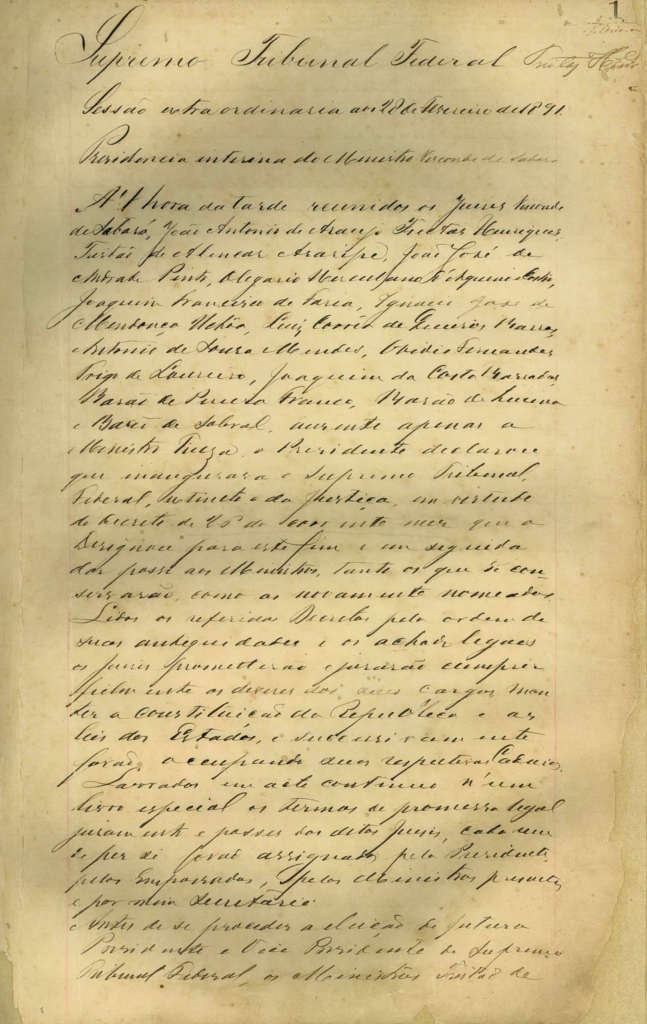 1
Supremo Tribunal Federal
Sessão extraordinaria aos 28 de Fevereiro de 1891.
Presidencia interina do Ministro Visconde de Sabará
Á 1 hora da tarde reunidos os Juizes Visconde
de Sabará, João Antonio de Araujo Freitas Henriques,
Tristão de Alencar Araripe, João José de
Andrade Pinto, Olegario Herculano d'Aquino e Castro,
Joaquim Francisco de Faria, Ignacio José de
Mendonça Uchôa, Luiz Corrêa de Queiros Barros,
Antonio de Souza Mendes, Ovidio Fernandes
Trigo de Loureiro, Joaquim da Costa Barradas,
Barão de Pereira Franco, Barão de Lucena
e Barão de Sobral, ausente apenas o
Ministro Piza, o Presidente declarou
que inaugurava o Supremo Tribunal
Federal, em virtude
do Decreto de 26 do que o
designou para este fim e em seguida
dar posse aos Ministros, tanto os que se con-
servarão, como os novamente nomeados.
Lidos os referidos Decretos pela ordem de
suas antiguidades e os achar legaes
os Juizes prometterão e jurarão cumprir
fielmente os deveres dos seus cargos, man-
ter a Constituição da Republica e as
leis dos Estados, e successivamente
forão occupando suas respectivas Cadeiras.
Lavrados em acto continuo n'um
livro especial os termos de promessa legal
juramento e posses dos ditos Juizes, cada um
de per si forão assignados pelo Presidente,
pelos Empossados, pelos Ministros presentes
e por mim Secretario.
Antes de se proceder a eleição do futuro
Presidente e Vice Presidente do Supremo
Tribunal Federal, os Ministros Tristão de